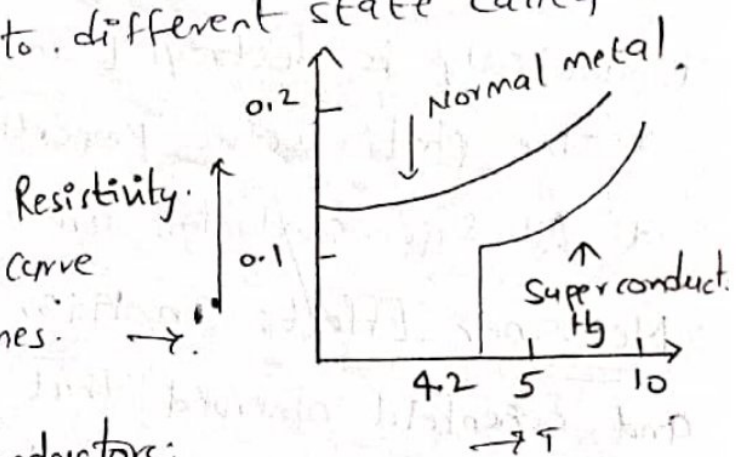 to. different state
Normal metal.
0.2
Resistivity.
Carve
0.1
Superconduct.
Hg
4.2 5 10
→ T